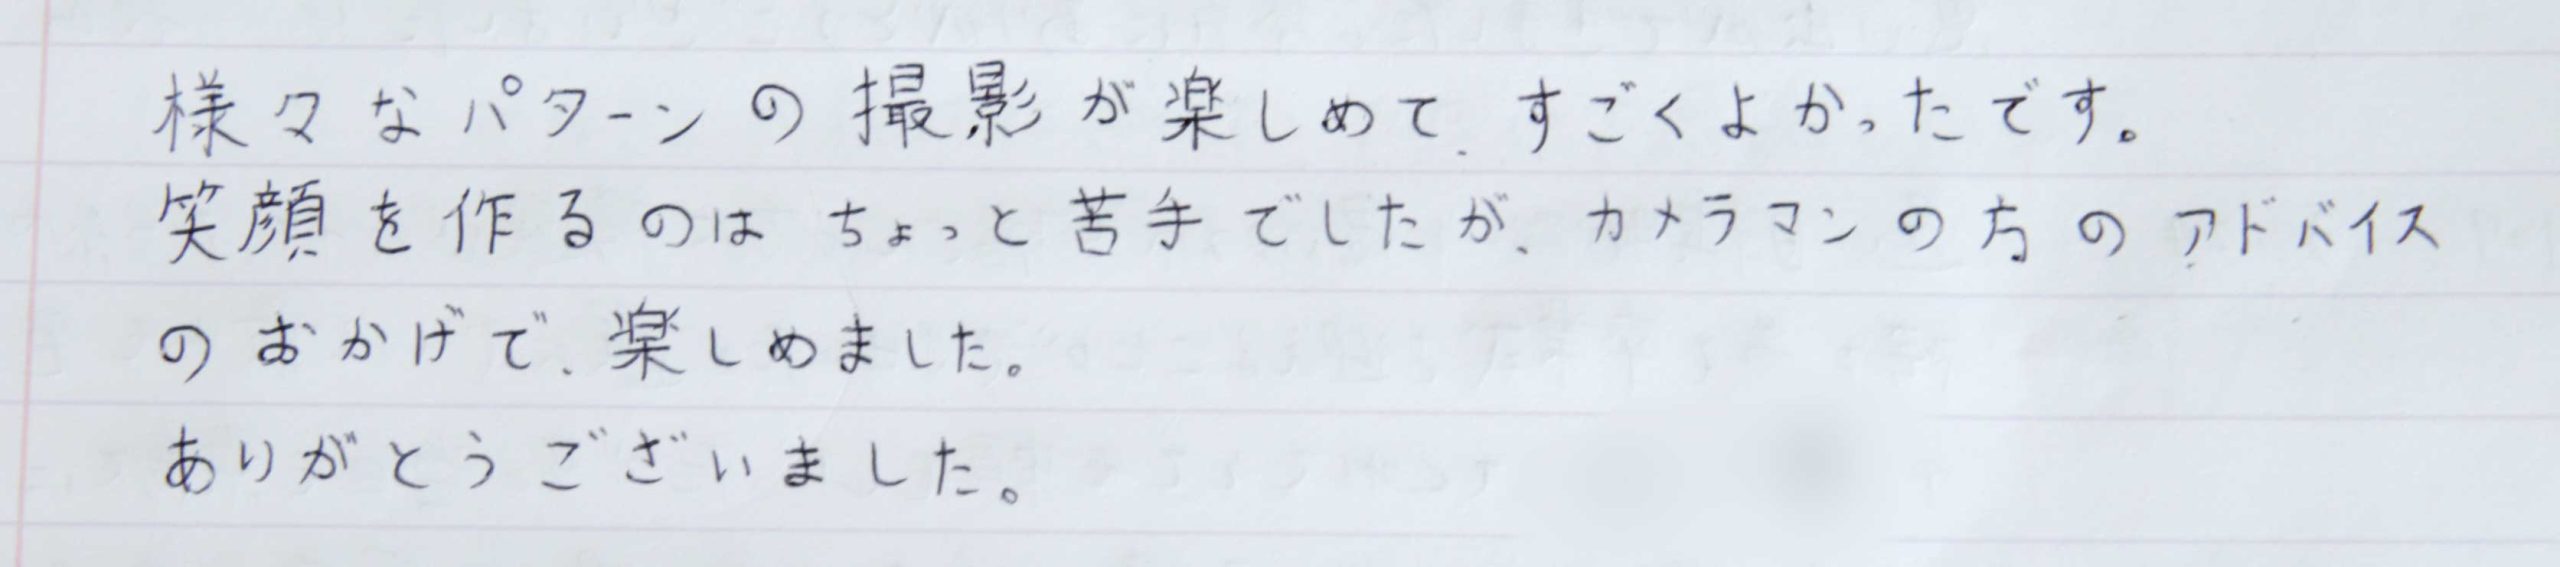 様々なパターンの撮影が楽しめて、すごくよかったです。
笑顔を作るのは ちょっと苦手でしたが、カメラマンの方のアドバイス
のおかげで、楽しめました。
ありがとうございました。